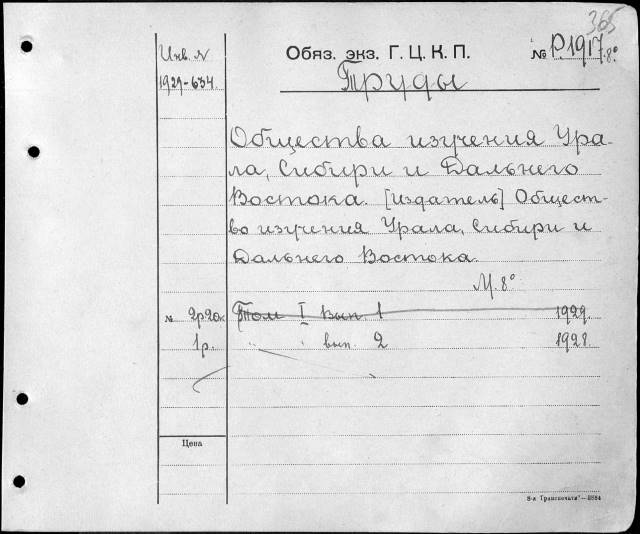 365
Инв. N
1929-634.
Обяз. экз. Г. Ц. К. П.
№ Р.1917.8°
Труды
Общества изучения Ура-
ла, Сибири и Дальнего
Востока. [Издатель] Общест-
во изучения Урала, Сибири и
Дальнего Востока.
М. 8°
№ 2р20к Том I Вып. 1 1929.
1р. " " вып. 2 1928.
Цена
8-я „Транспечати"—3884